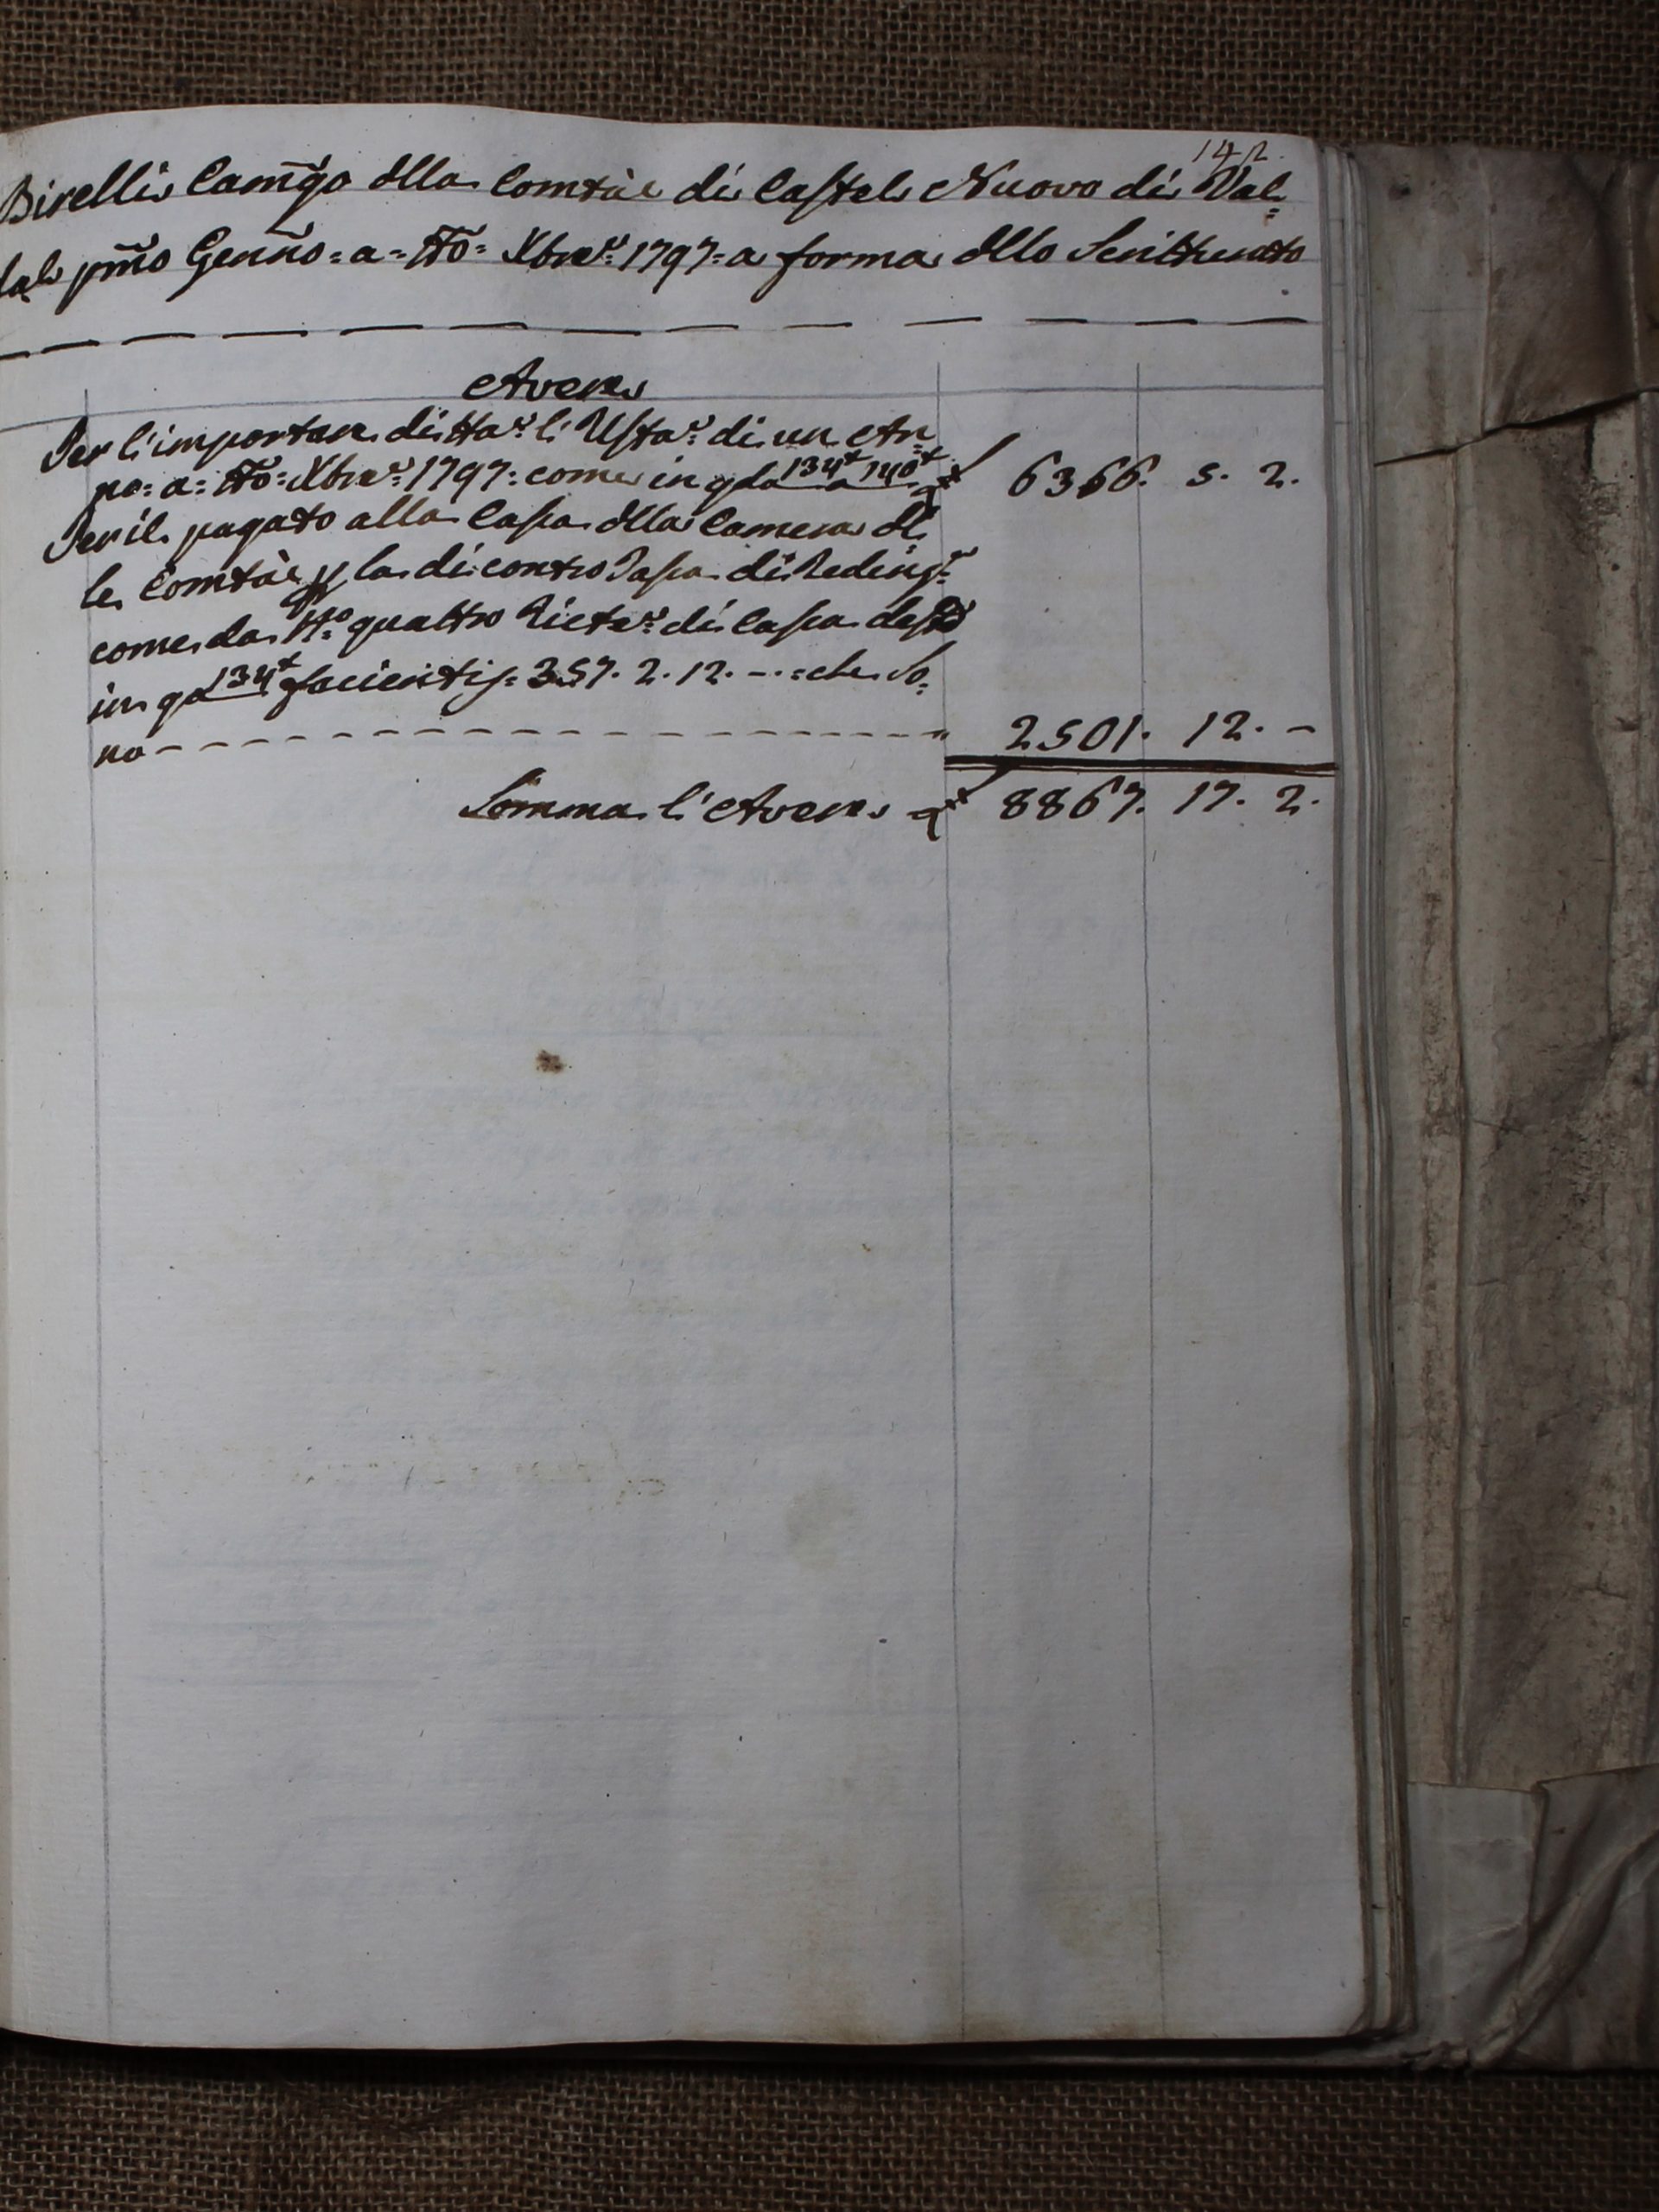 142.
Birelli Camg̃o dlla Comtàe di Castel Nuovo di Val=
dal pmõ Gennõ = a = tto = Xbre 1797 = a forma dllo
Avere
Per l'importare di tta li Usta di un An=
no = a = tto = Xbre 1797 = come in qdo 134t a 140t 6366. 5. 2.
Per il pagato alla Cassa dlla Camera dl=
le Comtàe p la di contro Tassa di Reding
come da No quattro Ricte di Cassa
in qdo 134t facienti 357. 2. 12. - = che So=
no 2501. 12. -
Somma l'Avere 8867. 17. 2.